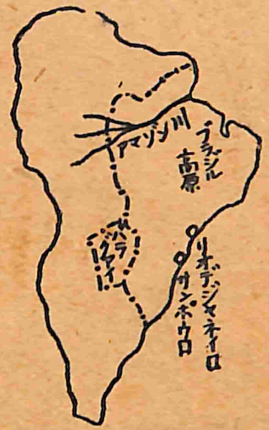 アマゾン川
ブラジル
高原
パラ
グァイ
リオデジャネイロ
サンポウロ